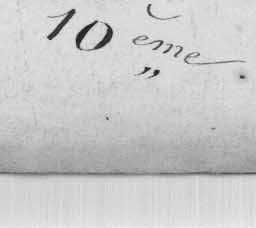 10 ème
„